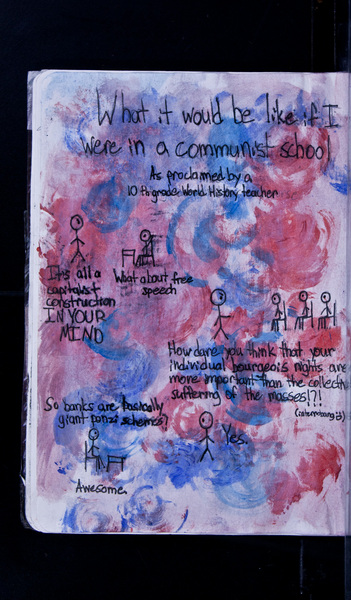 What it would be like if I
were in a communist school
As proclaimed by a
10th grade World History teacher
It's all a
capitalist
construction
IN YOUR
MIND
What about free
speech
How dare you think that your
individual bourgeois rights are
more important than the collective
suffering of the masses!?!
So banks are basically
giant ponzi schemes?
Yes.
Awesome.